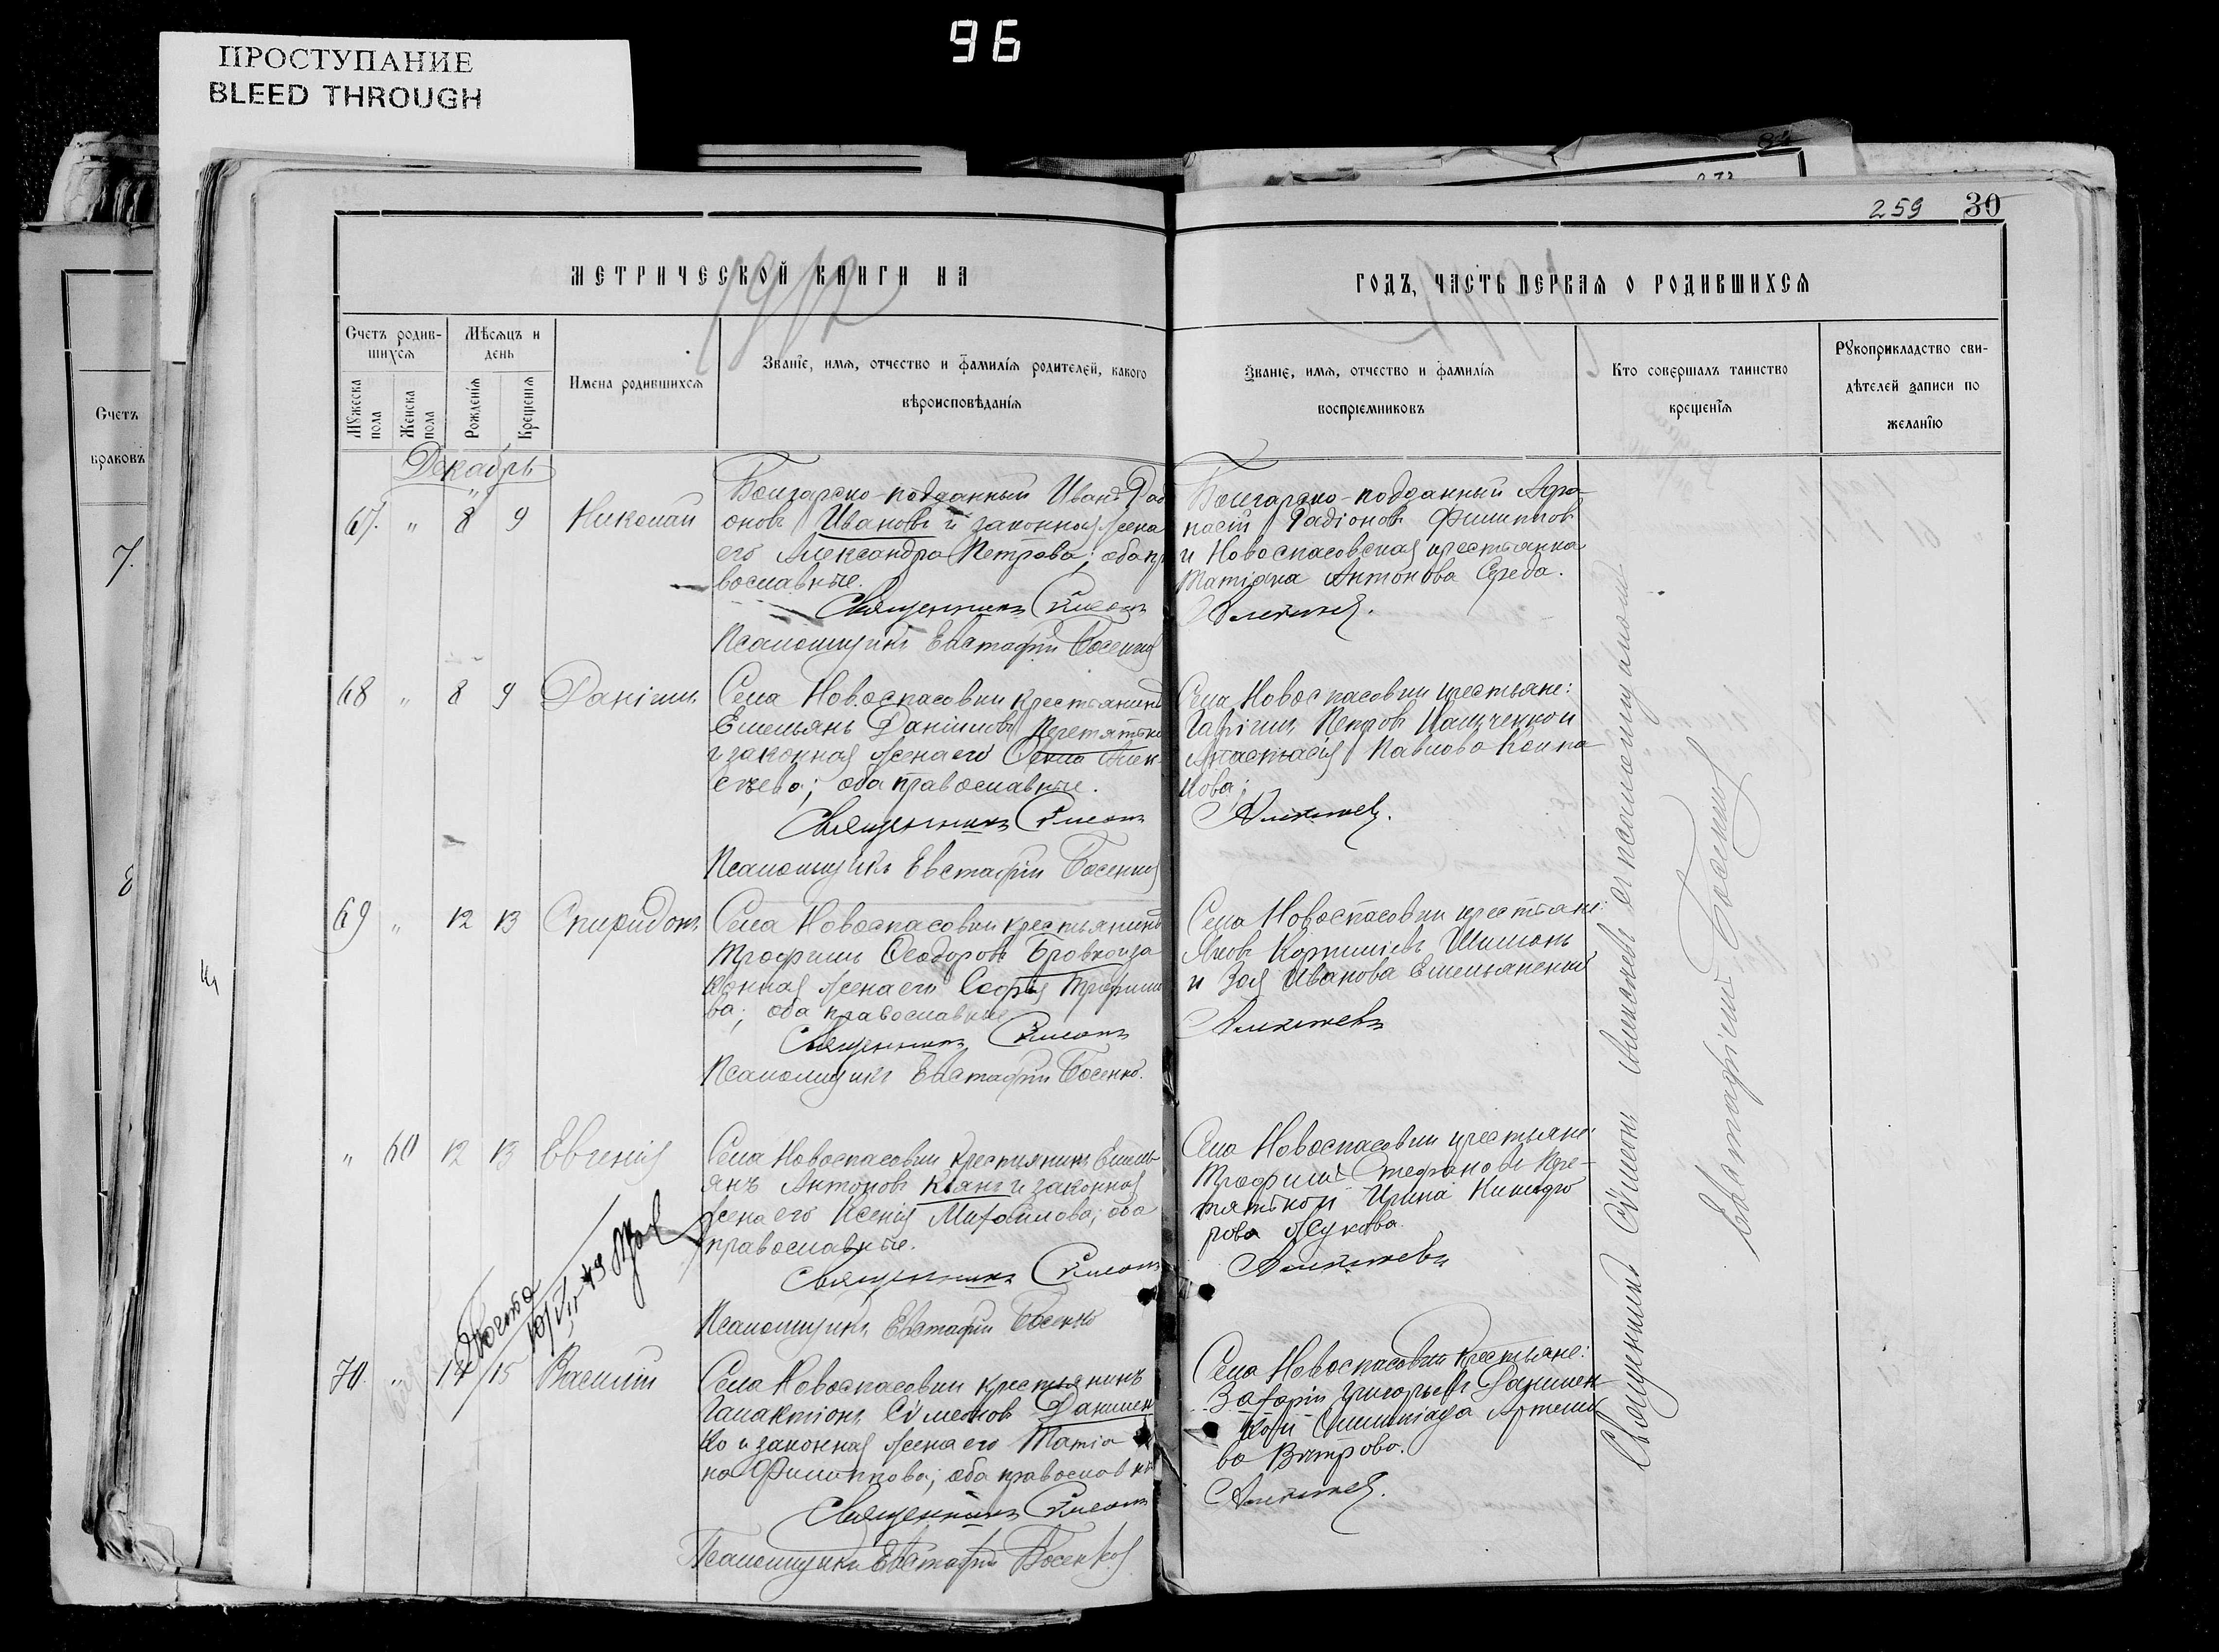 96
ПРОСТУПАНИЕ
BLEED THROUGH
84
273
259 30
МЕТРИЧЕСКОЙ КНИГИ НА 1912
ГОДЪ, ЧАСТЬ ПЕРВАЯ О РОДИВШИХСЯ
Счетъ родив-
шихся
Мужеска
пола
Женска
пола
Мѣсяцъ и
день
Рожденія
Крещенія
Имена родившихся
Званіе, имя, отчество и фамилія родителей, какого
вѣроисповѣданія
Званіе, имя, отчество и фамилія
воспріемниковъ
Кто совершалъ таинство
крещенія
Рукоприкладство сви-
дѣтелей записи по
желанію
Счетъ
браковъ
7.
8
Декабрь
67. " 8 9 Николай
Болгарско-подданный Иванъ Рад
оновъ Ивановъ и законная жена
его Александра Петрова; оба пр
вославные.
Священникъ Сѵмеонъ
Псаломщикъ Евстафій Босенко
Болгарско-подданный Афа-
насій Радіоновъ Филипповъ
и Новоспасовская крестьянка
Матрона Антонова Середа.
Алексѣевъ.
68 " 8 9 Даніилъ
Села Новоспасовки крестьянинъ
Емельянъ Даніиловъ Перетятько
и законная жена его Фекла Алек-
сѣева; оба православные.
Священникъ Сѵмеонъ
Псаломщикъ Евстафій Босенко
Села Новоспасовки крестьяне:
Гавріилъ Петровъ и
Анастасія Павлова
кова;
Алексѣевъ.
69 " 12 13 Спиридонъ
Села Новоспасовки крестьянинъ
Трофимъ Ѳеодоровъ Бровко и за
конная жена его Софія Трофимо
ва; оба православные
Священникъ Сѵмеонъ
Псаломщикъ Евстафій Босенко.
Села Новоспасовки крестьяне:
Яковъ Корниліевъ
и Зоя Иванова Емельяненко
Алексѣевъ
" 60 12 13 Евгенія
Села Новоспасовки крестьянинъ Емель
янъ Антоновъ Кіянъ и законная
жена его Ксенія Михайлова; оба
православные.
Священникъ Сѵмеонъ
Псаломщикъ Евстафій Босенко
Села Новоспасовки крестьяне:
Трофимъ Стефановъ Пере-
тятько и Ирина Никифо
рова Жукова.
Алексѣевъ
70. " 14 15 Василій
Села Новоспасовки крестьянинъ
Галактіонъ Сѵмеоновъ Данилен
ко и законная жена его Татіа
на Филиппова; оба православны
Священникъ Сѵмеонъ
Псаломщикъ Евстафій Босенко
Села Новоспасовки крестьяне:
Захарій Григорьевъ Данилен
ко и Олимпіада Артемо
ва Вѣтрова.
Алексѣевъ.
Священникъ Сѵмеонъ Алексѣевъ съ псаломщикомъ
Евстафіемъ Босенко